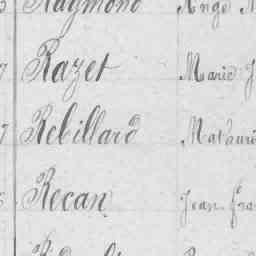 Raymond Ange
Razet Marie J
Rebillard Mathuri
Recan Jean Fra